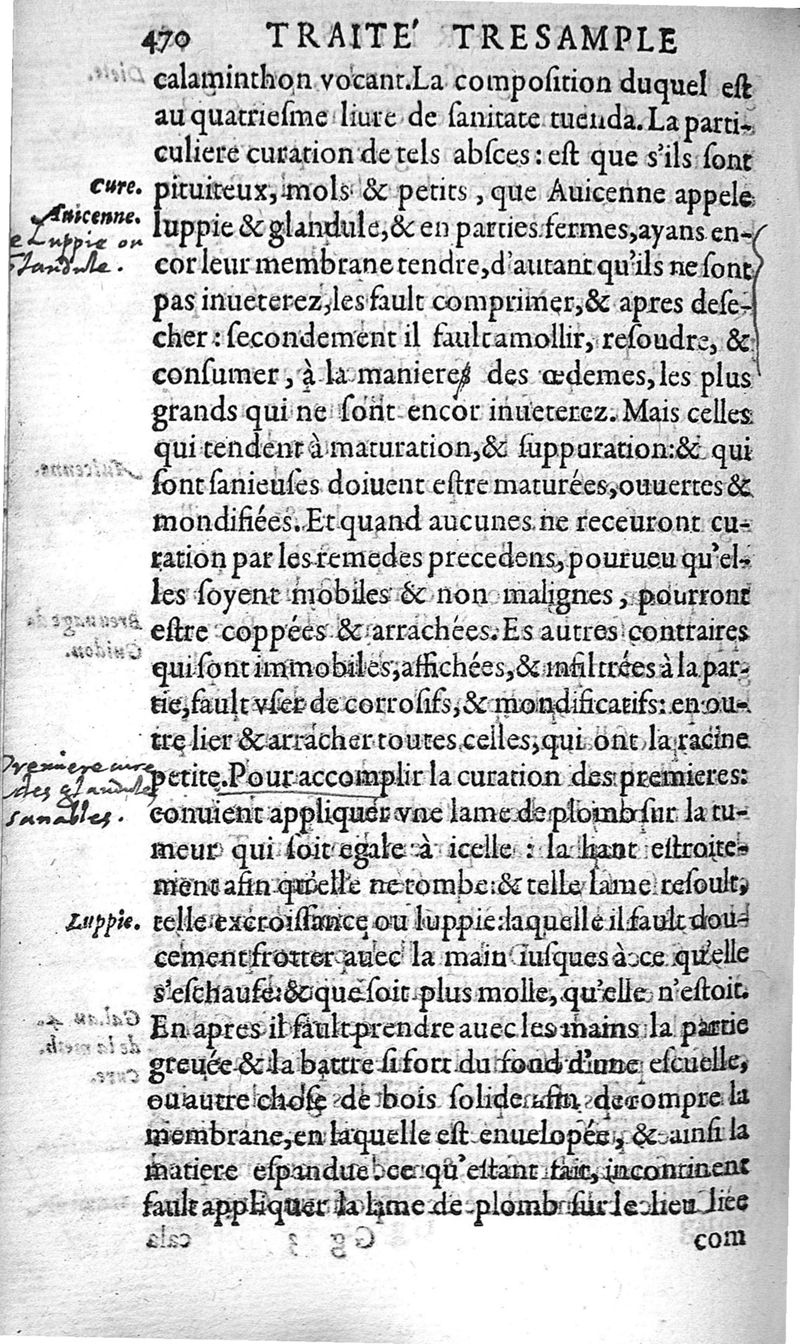 470 TRAITE' TRESAMPLE
calaminthon vocant. La composition duquel est
au quatriesme liure de sanitate tuenda. La parti-
culiere curation de tels absces: est que s'ils sont
Cure.
pituiteux, mols & petits, que Auicenne appele
Auicenne.
luppie & glandule, & en parties fermes, ayans en-
Luppie ou
glandule.
cor leur membrane tendre, d'autant qu'ils ne sont
pas inueterez, les fault comprimer, & apres dese-
cher: secondement il fault amollir, resoudre, &
consumer, à la maniere des œdemes, les plus
grands qui ne sont encor inueterez. Mais celles
qui tendent à maturation, & suppuration: & qui
sont sanieuses doiuent estre maturées, ouuertes &
mondifiées. Et quand aucunes ne receuront cu-
ration par les remedes precedens, pourueu qu'el-
les soyent mobiles & non malignes, pourront
estre coppées & arrachées. Es autres contraires
qui sont immobiles, affichées, & infiltrées à la par-
tie, fault vser de corrosifs, & mondificatifs: en ou-
tre lier & arracher toutes celles, qui ont la racine
Premiere cure
des glandules
sanables.
petite. Pour accomplir la curation des premieres:
conuient appliquer vne lame de plomb sur la tu-
meur qui soit egale à icelle: la liant estroite-
ment afin qu'elle ne tombe: & telle lame resoult,
Luppie.
telle excroissance ou luppie: laquelle il fault dou-
cement frotter auec la main iusques à ce qu'elle
s'eschaufe: & que soit plus molle, qu'elle n'estoit.
En apres il fault prendre auec les mains la partie
greuée & la battre si fort du fond d'une escuelle,
ou autre chose de bois solide afin de rompre la
membrane, en laquelle est enuelopée, & ainsi la
matiere espandue: ce qu'estant fait, incontinent
fault appliquer la lame de plomb sur le lieu liée
com